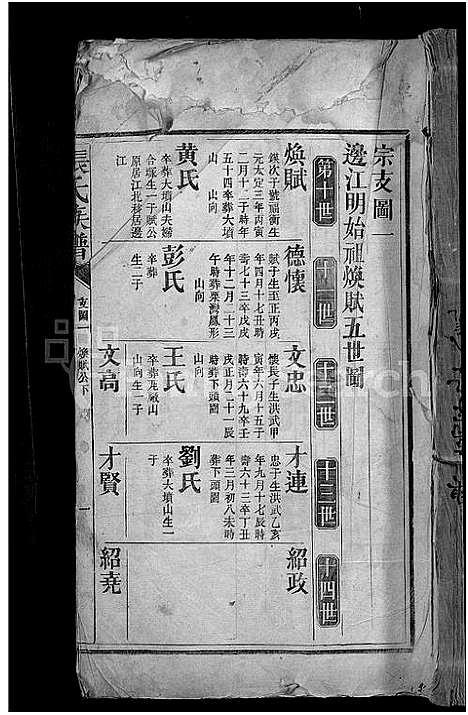 宗支圖一
邊江明始祖煥賦五世圖
第十世
十一世
十二世
十三世
十四世
煥賦
鍈次子號衛生
元太定三年丙寅
二月十二子時年
五十四卒葬大墳
山 山向
黃氏
卒葬大墳山夫婦
合塚生一子賦公
原居江北移居邊
江
德懷
賦子生至正丙戌
年四月十七丑時
壽七十三卒戊戌
年十二月二十三
午時葬栗灣鳳形
山向
彭氏
卒葬
生二子
文忠
懷長子生洪武甲
寅年六月十五子
時壽六十九卒壬
戌正月二十一辰
時葬下頭園
山向
王氏
卒葬
山向生一子
文高
才連
忠子生洪武乙亥
年九月十七辰時
壽六十三卒丁丑
年三月初八未時
葬下頭園
劉氏
卒葬大墳山生一
子
才賢
紹政
紹堯
張氏族譜
支圖一
煥賦公下
一